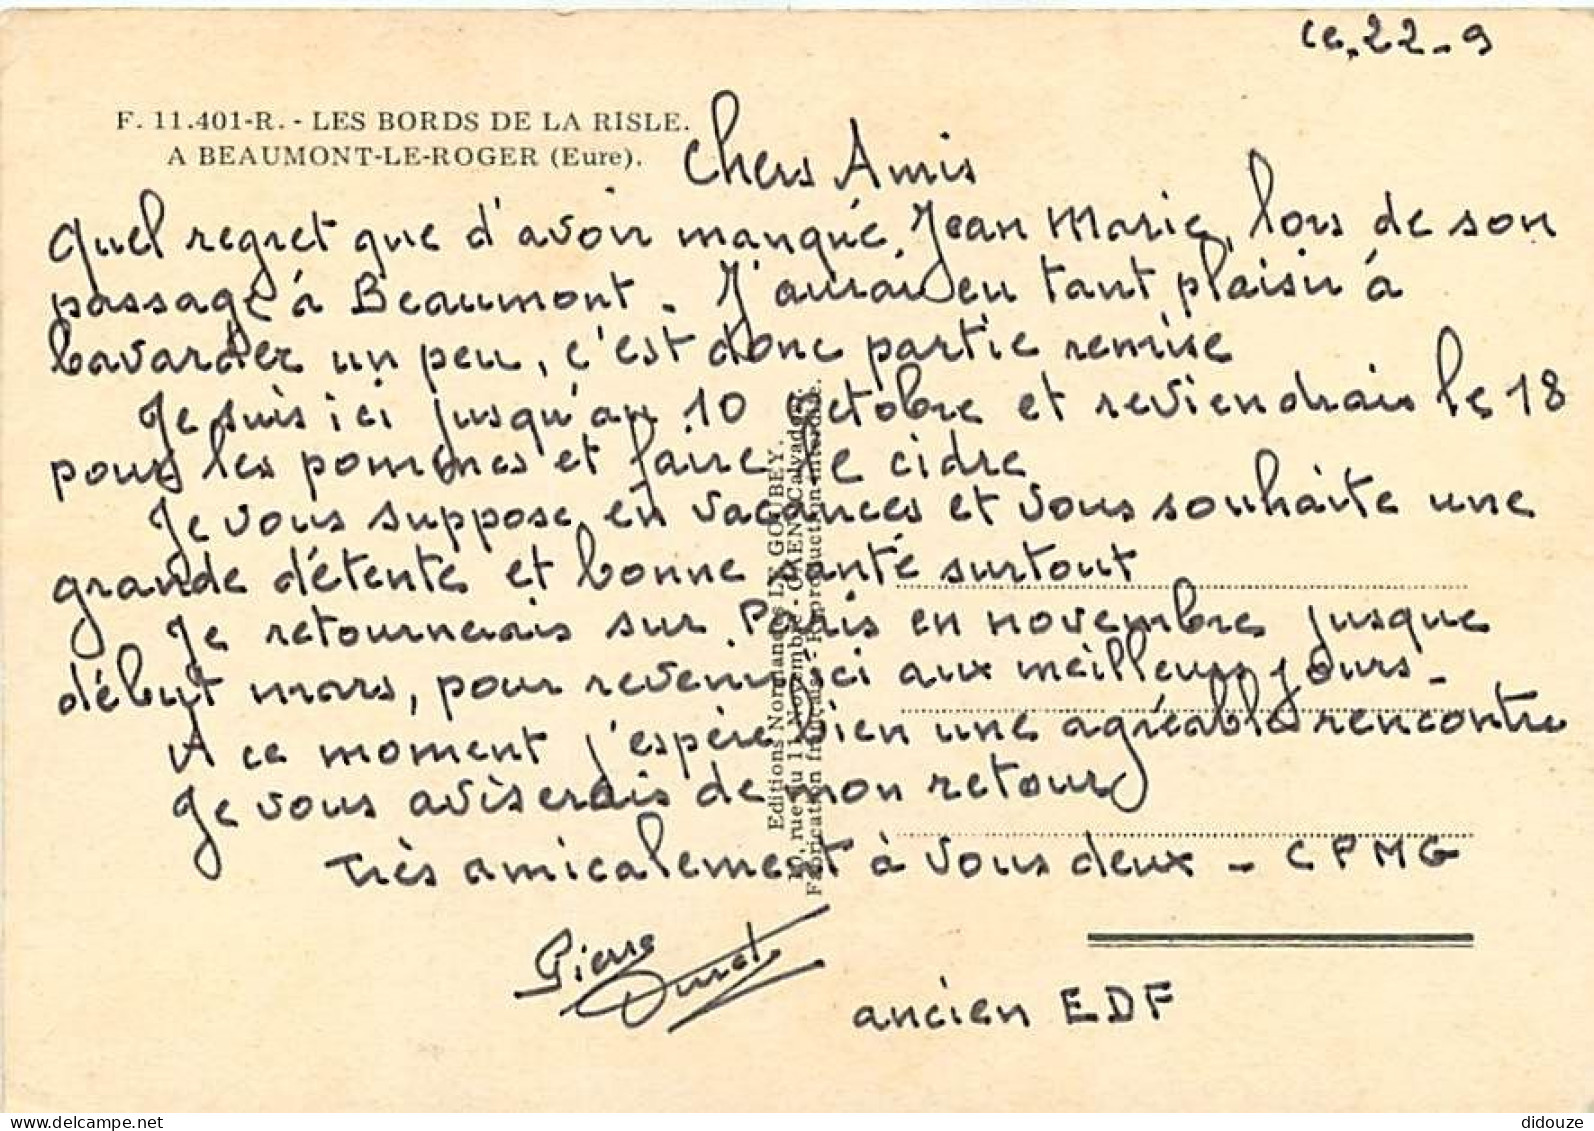 ce, 22-9
F. 11.401-R. - LES BORDS DE LA RISLE.
A BEAUMONT-LE-ROGER (Eure).
Chers Amis
Quel regret que d'avoir manqué, Jean Marie, lors de son
passage à Beaumont. J'aurais eu tant plaisir à
bavarder un peu, c'est donc partie remise
Je suis ici jusqu'au 10 Octobre et reviendrais le 18
pour les pommes et faire le cidre
Je vous suppose en vacances et vous souhaite une
grande détente et bonne santé surtout
Je retournerais sur Paris en novembre jusque
début mars, pour revenir ici aux meilleurs jours -
A ce moment j'espère bien une agréable rencontre
Je vous aviserais de mon retour
Très amicalement à vous deux - CPMG
Pierre
ancien EDF
Editions Normandes LE GOUBEY.
10, rue du 11 Novembre - CAEN (Calvados).
Fabrication française - Reproduction interdite.
delcampe.net
didouze